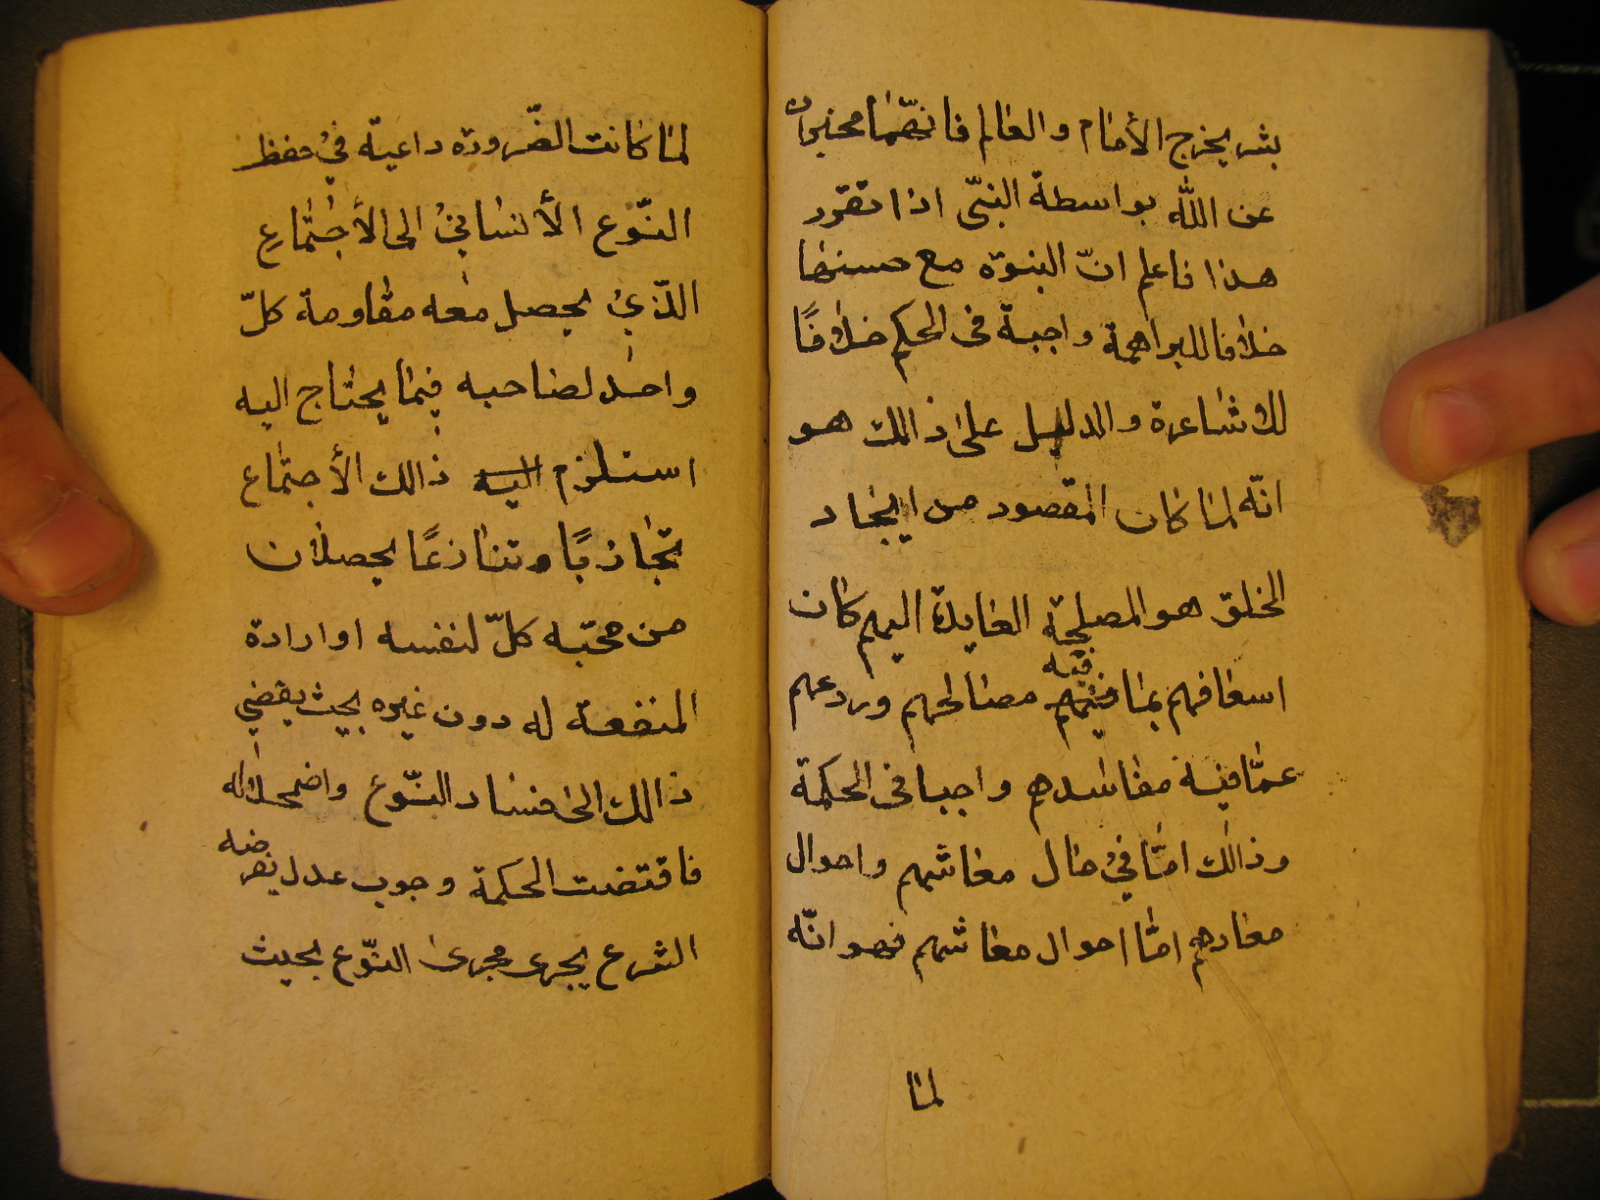 بشر يخرج الأمام والعالم فانهّما مخبران
عن اللّه بواسطة النبّى اذا تقرر
هذا فاعلم انّ النبوة مع حسنها
خلافا للبراهمة واجبة فى الحكم خلافًا
للاشاعرة والدليل على ذالك هو
انّه لما كان المقصود من ايجاد
الخلق هو المصلحة العايدة اليهم كان
اسعافهم بما فيه مصالحهم وردعهم
عمّا فيه مفاسدهم واجبا فى الحكمة
وذالك امّا في حال معاشهم واحوال
معادهم امّا احوال معاشهم فهو انّه
لما
لما كانت الضّرورة داعية في حفظ
النّوع الأنساني الى الأجتماع
الّذي يحصل معه مقاومة كلّ
واحد لصاحبه فيما يحتاج اليه
استلزم اليه ذالك الأجتماع
تجاذبًا وتنازعًا يحصلان
من محبّه كلّ لنفسه اوارادة
المنفعة له دون غيره بحيث يقضي
ذالك الى فساد النّوع واضمحلاله
فاقتضت الحكمة وجوب عدل يفرضه
الشرع يجرى مجرى النّوع بحيث